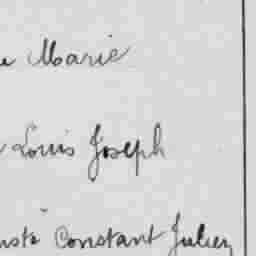 Marie
Louis Joseph
Constant Julien